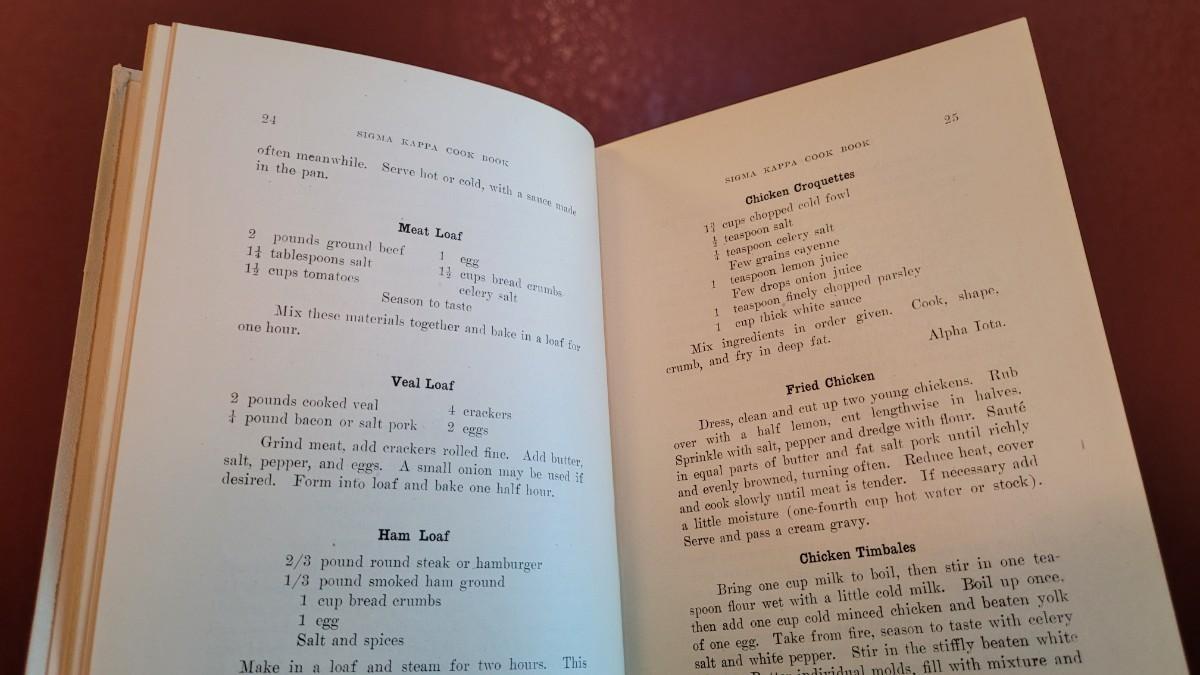 24
SIGMA KAPPA COOK BOOK
often meanwhile. Serve hot or cold, with a sauce made
in the pan.
Meat Loaf
2 pounds ground beef 1 egg
1¼ tablespoons salt 1½ cups bread crumbs
1½ cups tomatoes celery salt
Season to taste
Mix these materials together and bake in a loaf for
one hour.
Veal Loaf
2 pounds cooked veal 4 crackers
¼ pound bacon or salt pork 2 eggs
Grind meat, add crackers rolled fine. Add butter,
salt, pepper, and eggs. A small onion may be used if
desired. Form into loaf and bake one half hour.
Ham Loaf
2/3 pound round steak or hamburger
1/3 pound smoked ham ground
1 cup bread crumbs
1 egg
Salt and spices
Make in a loaf and steam for two hours. This
25
SIGMA KAPPA COOK BOOK
Chicken Croquettes
1¾ cups chopped cold fowl
½ teaspoon salt
¼ teaspoon celery salt
Few grains cayenne
1 teaspoon lemon juice
Few drops onion juice
1 teaspoon finely chopped parsley
1 cup thick white sauce
Mix ingredients in order given. Cook, shape,
crumb, and fry in deep fat.
Alpha Iota.
Fried Chicken
Dress, clean and cut up two young chickens. Rub
over with a half lemon, cut lengthwise in halves.
Sprinkle with salt, pepper and dredge with flour. Sauté
in equal parts of butter and fat salt pork until richly
and evenly browned, turning often. Reduce heat, cover
and cook slowly until meat is tender. If necessary add
a little moisture (one-fourth cup hot water or stock).
Serve and pass a cream gravy.
Chicken Timbales
Bring one cup milk to boil, then stir in one tea-
spoon flour wet with a little cold milk. Boil up once,
then add one cup cold minced chicken and beaten yolk
of one egg. Take from fire, season to taste with celery
salt and white pepper. Stir in the stiffly beaten white
individual molds, fill with mixture and